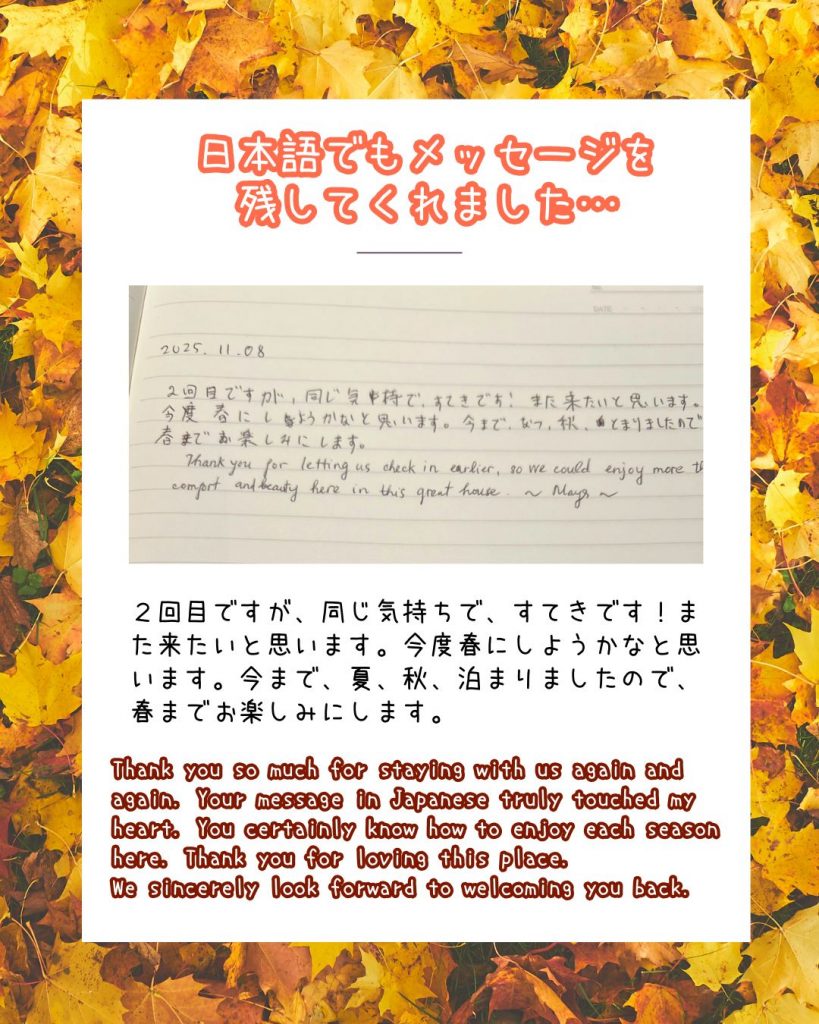 日本語でもメッセージを
残してくれました…
DATE
2025.11.08
2回目ですが、同じ気持で、すてきです! また来たいと思います。
今度 春にしようかなと思います。今まで、なつ、秋、とまりましたので
春までお楽しみにします。
Thank you for letting us check in earlier, so we could enjoy more th
comfort and beauty here in this great house. ~ ~
２回目ですが、同じ気持ちで、すてきです！ま
た来たいと思います。今度春にしようかなと思
います。今まで、夏、秋、泊まりましたので、
春までお楽しみにします。
Thank you so much for staying with us again and
again. Your message in Japanese truly touched my
heart. You certainly know how to enjoy each season
here. Thank you for loving this place.
We sincerely look forward to welcoming you back.